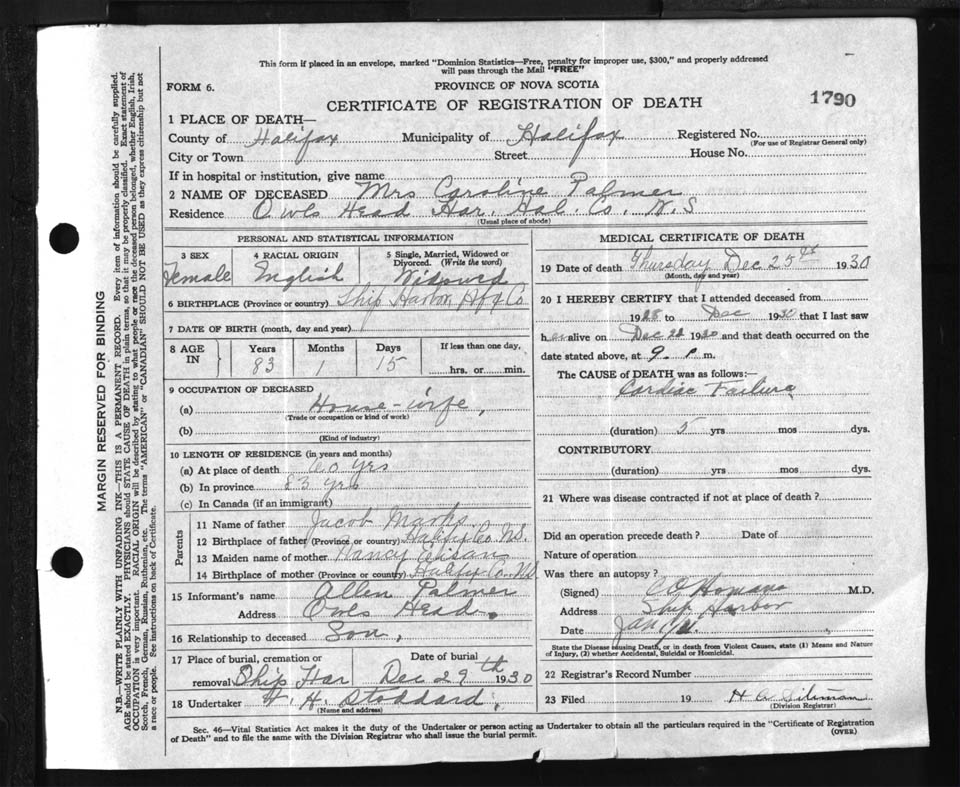 This form if placed in an envelope, marked "Dominion Statistics—Free, penalty for improper use, $300," and properly addressed
will pass through the Mail "FREE"
FORM 6.
PROVINCE OF NOVA SCOTIA
CERTIFICATE OF REGISTRATION OF DEATH
1790
1 PLACE OF DEATH—
County of Halifax Municipality of Halifax Registered No.
(For use of Registrar General only)
City or Town Street House No.
If in hospital or institution, give name
2 NAME OF DECEASED Mrs Caroline Palmer
Residence Owls Head Har. Hal. Co. N.S
(Usual place of abode)
PERSONAL AND STATISTICAL INFORMATION
3 SEX 4 RACIAL ORIGIN 5 Single, Married, Widowed or
Divorced. (Write the word)
Female English Widowed
6 BIRTHPLACE (Province or country) Ship Harbor, Hfx Co
7 DATE OF BIRTH (month, day and year)
8 AGE IN Years Months Days If less than one day,
83 1 15 hrs. or min.
9 OCCUPATION OF DECEASED
(a) House-wife,
(Trade or occupation or kind of work)
(b)
(Kind of industry)
10 LENGTH OF RESIDENCE (in years and months)
(a) At place of death yrs
(b) In province 83 yrs
(c) In Canada (if an immigrant)
Parents
11 Name of father Jacob Marks
12 Birthplace of father (Province or country) Halifax Co. N.S.
13 Maiden name of mother Nancy
14 Birthplace of mother (Province or country) Halifax Co. N.S
15 Informant's name Allen Palmer
Address Owls Head.
16 Relationship to deceased Son,
17 Place of burial, cremation or Date of burial
removal Ship Har Dec 29th 1930
18 Undertaker H. H. Stoddard,
(Name and address)
MEDICAL CERTIFICATE OF DEATH
19 Date of death Thursday Dec 25th 1930
(Month, day and year)
20 I HEREBY CERTIFY that I attended deceased from
1928 to Dec 1930 that I last saw
her alive on Dec 22 1930 and that death occurred on the
date stated above, at 9. P m.
The CAUSE of DEATH was as follows:—
Cardiac Failure
(duration) 5 yrs mos dys.
CONTRIBUTORY
(duration) yrs mos dys.
21 Where was disease contracted if not at place of death?
Did an operation precede death? Date of
Nature of operation
Was there an autopsy?
(Signed) M.D.
Address Ship Harbor
Date Jan
State the Disease causing Death, or in death from Violent Causes, state (1) Means and Nature
of Injury, (2) whether Accidental, Suicidal or Homicidal.
22 Registrar's Record Number
23 Filed 19 H A
(Division Registrar)
Sec. 46—Vital Statistics Act makes it the duty of the Undertaker or person acting as Undertaker to obtain all the particulars required in the "Certificate of Registration
of Death" and to file the same with the Division Registrar who shall issue the burial permit. (OVER)
MARGIN RESERVED FOR BINDING
N.B.—WRITE PLAINLY WITH UNFADING INK—THIS IS A PERMANENT RECORD. Every item of information should be carefully supplied.
AGE should be stated EXACTLY. PHYSICIANS should STATE CAUSE OF DEATH in plain terms, so that it may be properly classified. Exact statement of
OCCUPATION is very important. RACIAL ORIGIN will be described by stating to what people or race the deceased person belonged, whether English, Irish,
Scotch, French, German, Russian, Ruthenian, etc. The terms "AMERICAN" or "CANADIAN" SHOULD NOT BE USED as they express citizenship but not
a race or people. See instructions on back of Certificate.